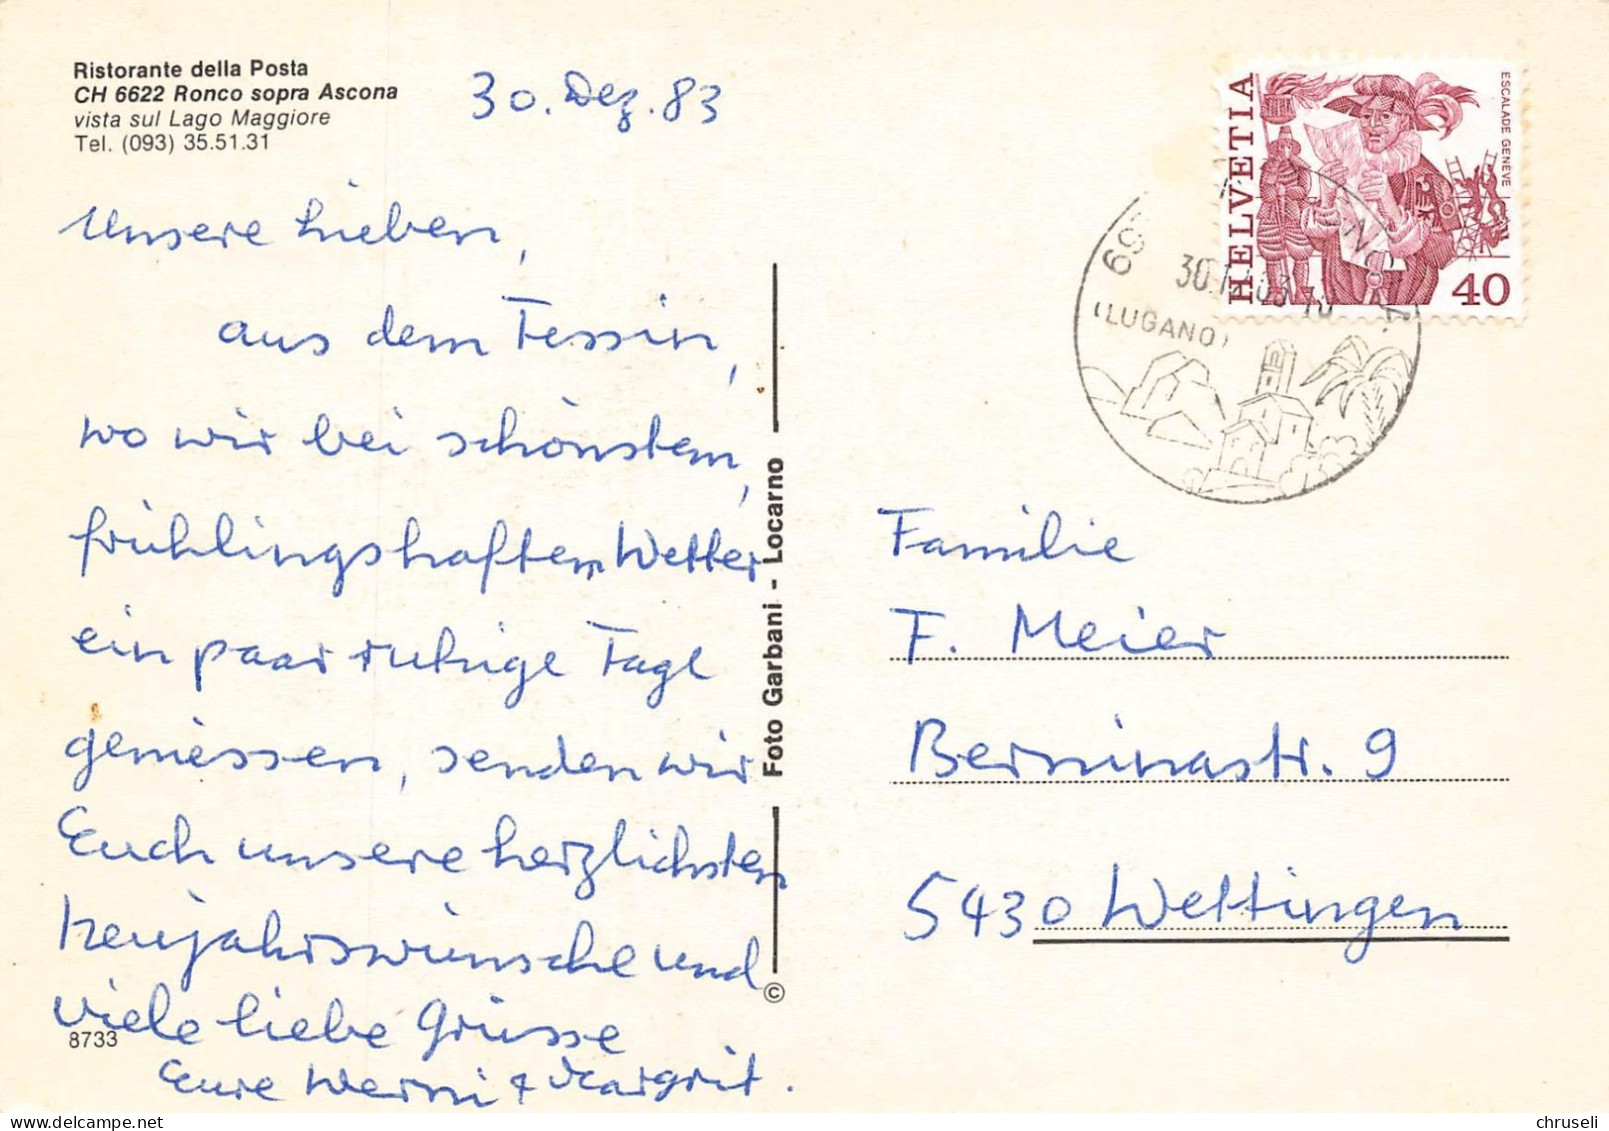 Ristorante della Posta
CH 6622 Ronco sopra Ascona
vista sul Lago Maggiore
Tel. (093) 35.51.31
30. Dez. 83
Unsere Lieben,
aus dem Tessin,
wo wir bei schönstem,
frühlingshaftem Wetter
ein paar ruhige Tage
geniessen, senden wir
Euch unsere herzlichsten
Neujahrswünsche und
viele liebe Grüsse
Eure Werni & Margrit.
8733
Foto Garbani - Locarno
©
HELVETIA
ESCALADE GENÈVE
40
(LUGANO)
Familie
F. Meier
Berninastr. 9
5430 Wettingen
chruseli